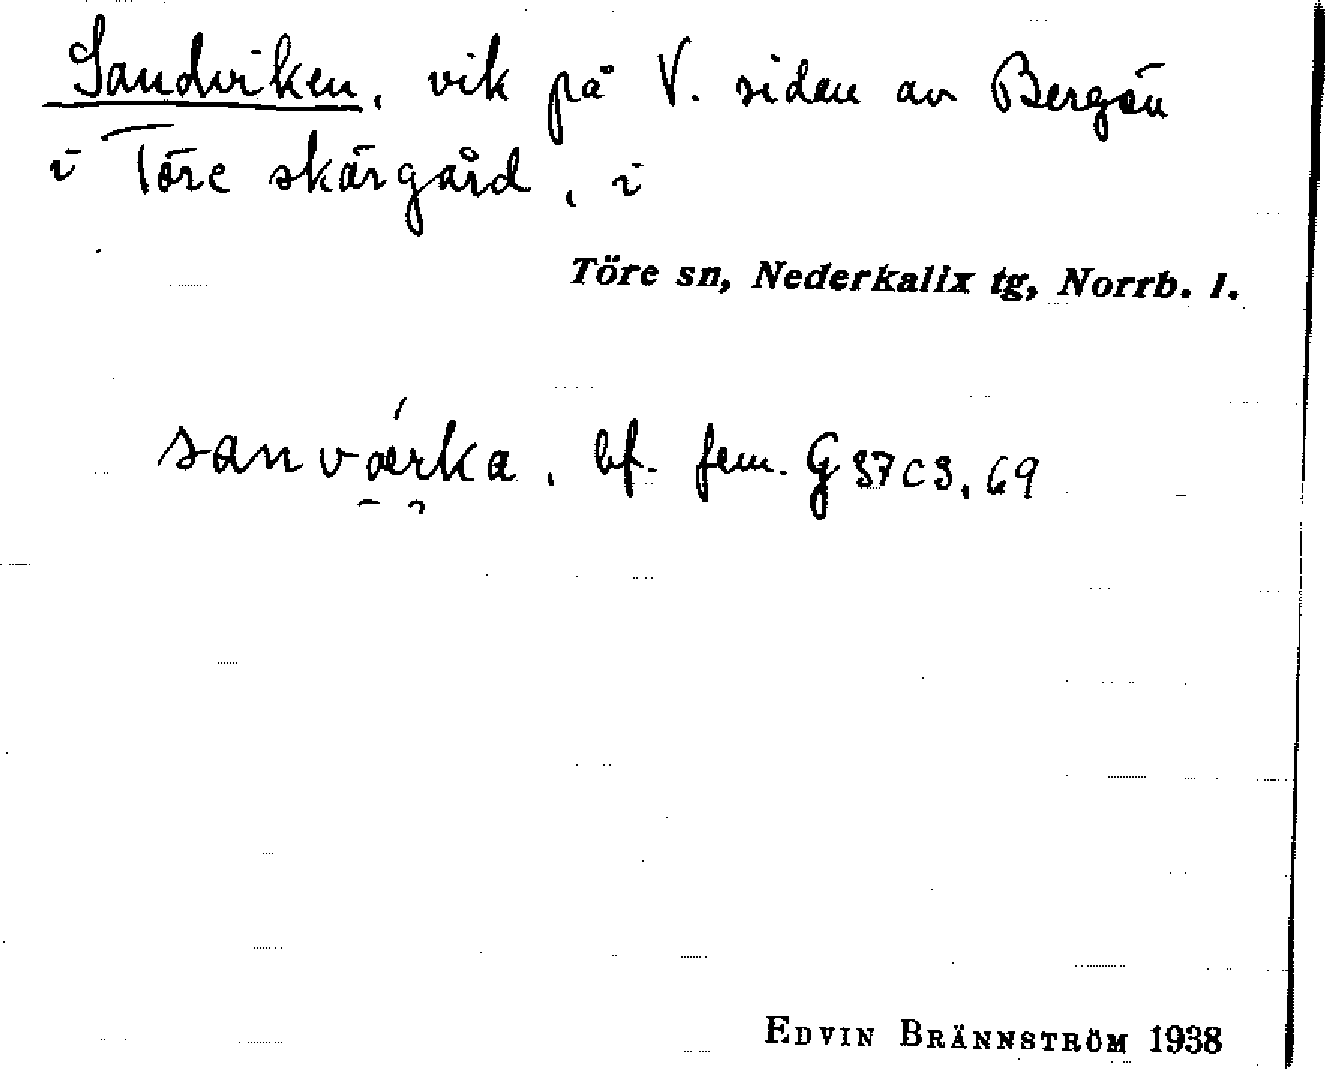 Sandviken, vik på V. siden av Bergön
i Töre skärgård, i
Töre sn, Nederkalix tg, Norrb. l.
sanværka, bf. fem. G S7C3, 69
EDVIN BRÄNNSTRÖM 1938